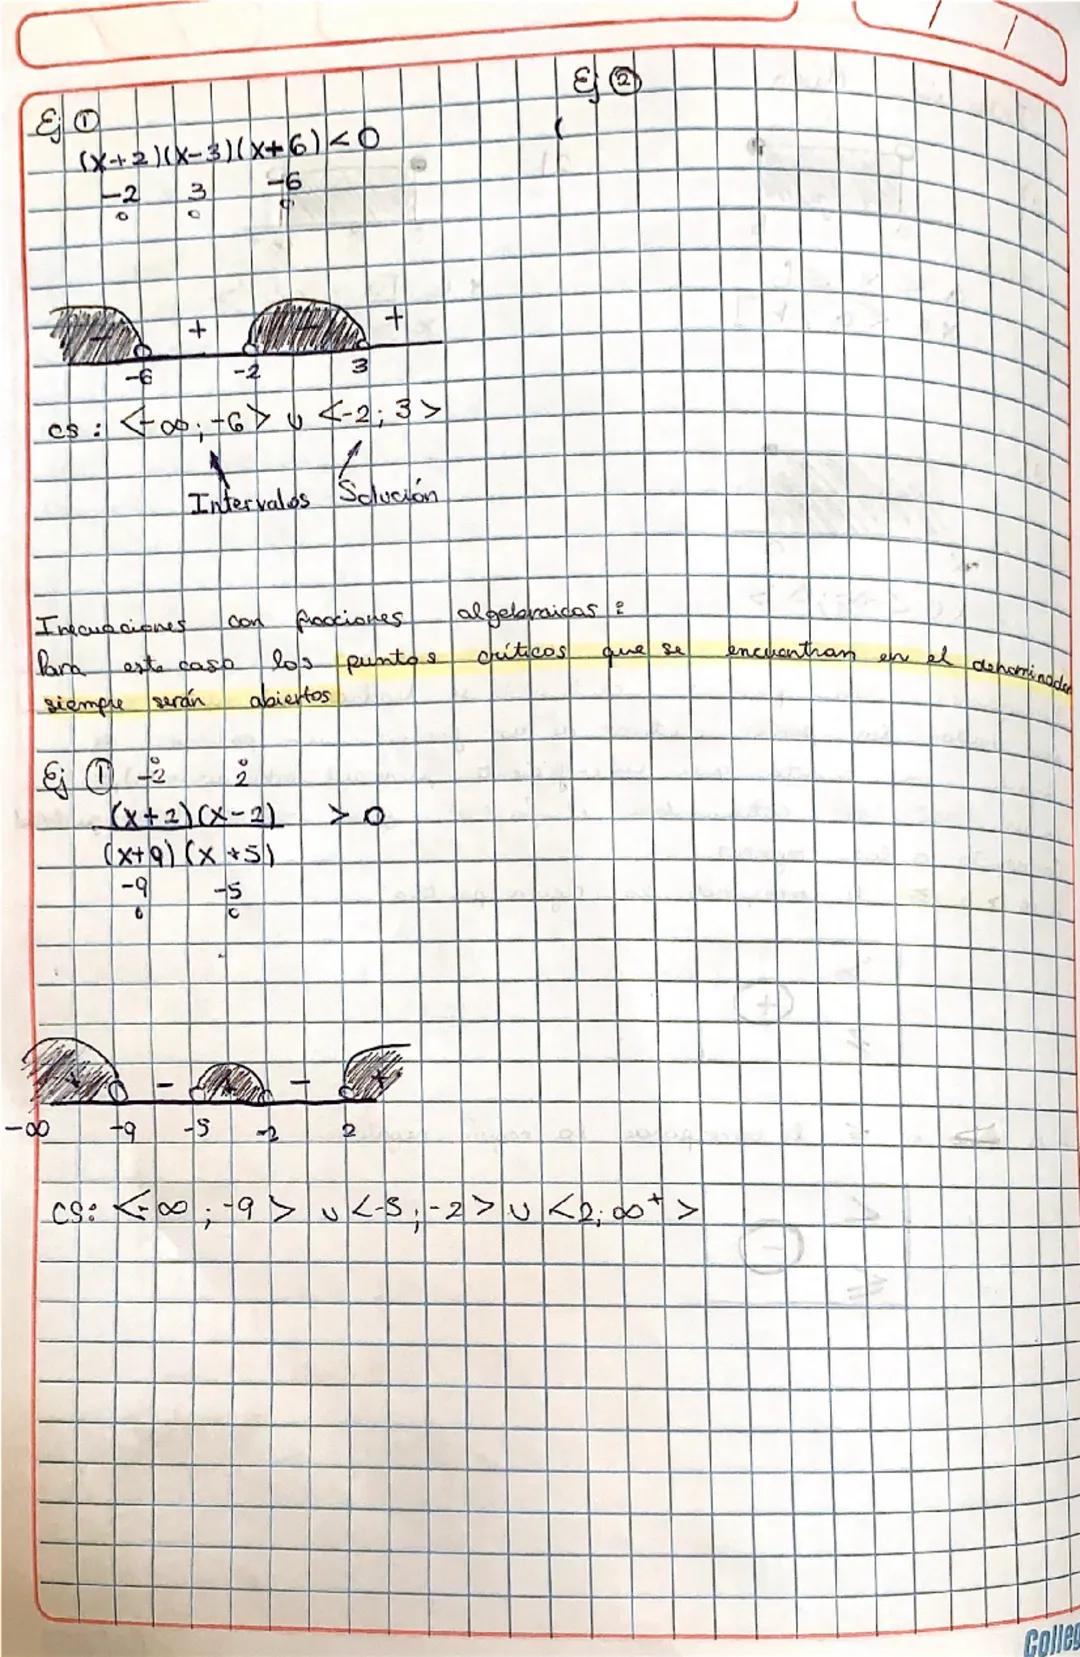 Ej ①
(x+2)(x-3)(x+6)<0
-2 3 -6
Ej ②
(
- + - +
-6 -2 3
CS: <-∞; -6> ∪ <-2; 3>
Intervalos Solución
Inecuaciones con fracciones algebraicas:
Para este caso los puntos críticos que se encuentran en el denominador
siempre serán abiertos
Ej ① -2 2
(x+2)(x-2) > 0
(x+9)(x+5)
-9 -5
+ - + - +
-∞ -9 -5 -2 2
CS: <-∞; -9> ∪ <-5; -2> ∪ <2; ∞⁺>
Colleg